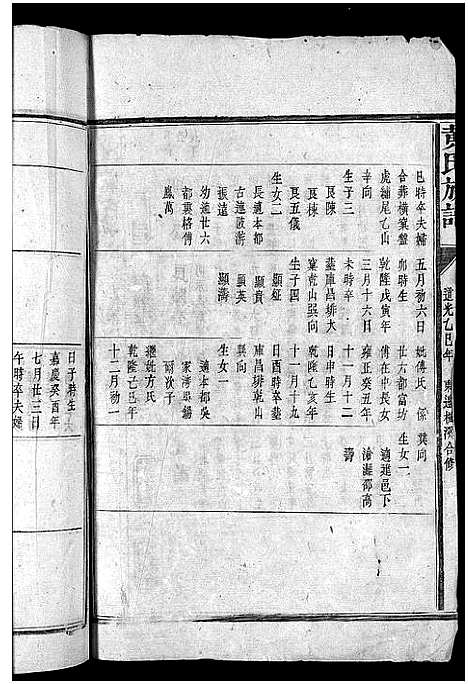 黄氏族譜
道光乙巳年
合修
巳時卒夫婦
合葬橫窠盤
虎獅尾乙山
辛向
生子三
長陳
長棟
長五儀
生女二
長適本都
古連歧游
振遠
幼適廿六
都襄格傅
鳳萬
五月初六日
卯時生
乾隆戊寅年
三月十六日
未時卒
葬庫昌排大
窠乾山巽向
生子四
顯紝
顯貴
顯英
顯濤
妣傅氏係
廿六都富坊
傅在中長女
雍正癸丑年
十一月十二
日申時生
乾隆乙亥年
十一月十九
日酉時卒葬
庫昌排乾山
巽向
生女一
適本都吳
家灣吳錫
爾次子
繼妣方氏
乾隆己巳年
十二月初一
巽向
生女一
適進邑下
滄湖鄒高
壽
日子時生
嘉慶癸酉年
七月廿三日
午時卒夫婦